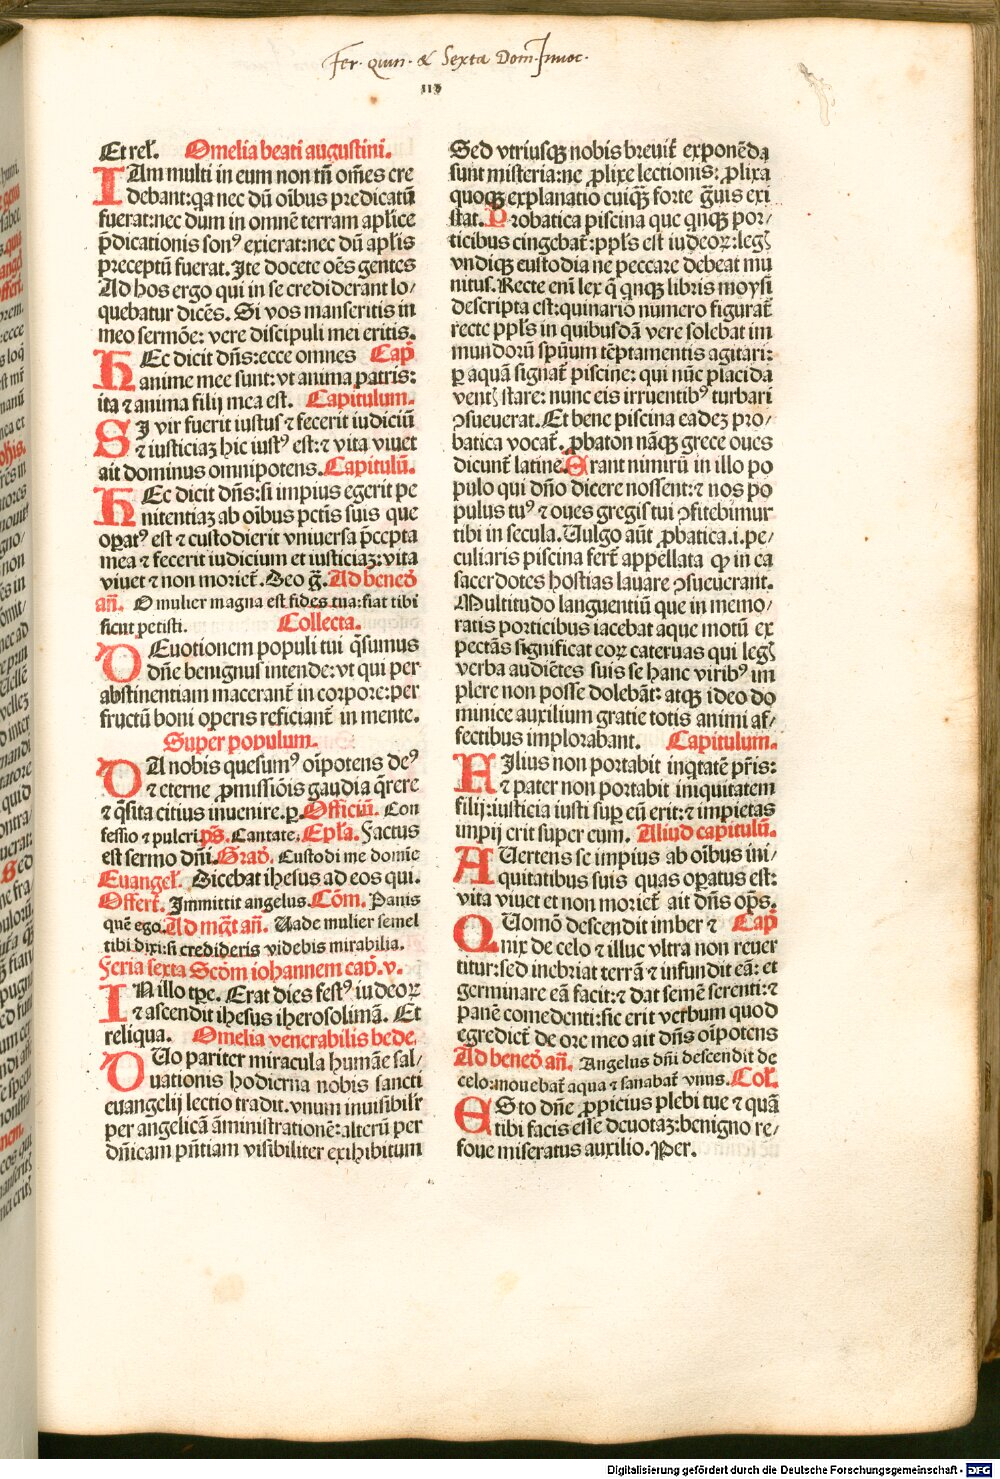 Fer. Quin. & Sexta Dom. Invoc.
113
Et rel̃. Omelia beati augustini.
IAm multi in eum non tñ om̃es cre
debant: qa nec dũ oĩbus predicatũ
fuerat: nec dum in omnẽ terram apl̃ice
p̃dicationis sonꝰ exierat: nec dũ apl̃is
preceptũ fuerat. Ite docete oẽs gentes
Ad hos ergo qui in se crediderant lo/
quebatur dicẽs. Si vos manseritis in
meo sermõe: vere discipuli mei eritis.
HEc dicit dñs: ecce omnes Cap̃
anime mee sunt: vt anima patris:
ita ⁊ anima filij mea est. Capitulum.
SI vir fuerit iustus ⁊ fecerit iudiciũ
⁊ iusticiaꝫ hic iustꝰ est: ⁊ vita viuet
ait dominus omnipotens. Capitulũ.
HEc dicit dñs: si impius egerit pe
nitentiaꝫ ab oĩbus pctĩs suis que
oꝑatꝰ est ⁊ custodierit vniuersa p̃cepta
mea ⁊ fecerit iudicium et iusticiaꝫ: vita
viuet ⁊ non moriet̃. Deo g̃. Ad bened̃
añ. O mulier magna est fides tua: fiat tibi
sicut petisti. Collecta.
DEuotionem populi tui q̃sumus
dñe benignus intende: vt qui per
abstinentiam macerant̃ in corpore: per
fructũ boni operis reficiant̃ in mente.
Super populum.
DA nobis quesumꝰ oĩpotens deꝰ
⁊ eterne ꝓmissiõis gaudia q̃rere
⁊ q̃sita citius inuenire. ꝑ. Officiũ. Con
fessio ⁊ pulcri. p̃s. Cantate. Epl̃a. Factus
est sermo dñi. Grad̃. Custodi me domĩe
Euangel̃. Dicebat ihesus ad eos qui.
Offert̃. Immittit angelus. Cõm. Panis
quẽ ego. Ad mg̃t añ. Uade mulier semel
tibi dixi: si credideris videbis mirabilia.
Feria sexta Scd̃m iohannem cap̃. v.
IN illo tp̃e. Erat dies festꝰ iudeoꝝ
⁊ ascendit ihesus iherosolimã. Et
reliqua. Omelia venerabilis bede.
DUo pariter miracula humãe sal/
uationis hodierna nobis sancti
euangelij lectio tradit. vnum inuisibil̃r
per angelicã ãministrationẽ: alterũ per
dñicam pñtiam visibiliter exihibitum
Sed vtriusqꝫ nobis breuit̃ exponẽda
sunt misteria: ne ꝓlixe lectionis: ꝓlixa
quoqꝫ explanatio cuiqꝫ forte g̃uis exi
stat. Probatica piscina que qnqꝫ por/
ticibus cingebat̃: ppl̃s est iudeoꝝ: legꝭ
vndiqꝫ custodia ne peccare debeat mu
nitus. Recte eni lex q̃ qnqꝫ libris moysi
descripta est: quinario numero figurat̃
recte ppl̃s in quibusdã vere solebat im
mundorũ sp̃uum tẽptamentis agitari:
ꝑ aquã signat̃ piscine: qui nũc placida
ventꝭ stare: nunc eis irruentibꝰ turbari
ꝯsueuerat. Et bene piscina eadeꝫ pro/
batica vocat̃. ꝓbaton nãqꝫ grece oues
dicunt̃ latine. Erant nimirũ in illo po
pulo qui dño dicere nossent: ⁊ nos po
pulus tuꝰ ⁊ oues gregis tui ꝯfitebimur
tibi in secula. Uulgo aũt ꝓbatica. i. pe/
culiaris piscina fert̃ appellata ꝙ in ea
sacerdotes hostias lauare ꝯsueuerant.
Multitudo languentiũ que in memo/
ratis porticibus iacebat aque motũ ex
pectãs significat eoꝝ cateruas qui legꝭ
verba audiẽtes suis se hanc viribꝰ im
plere non posse dolebãt: atqꝫ ideo do
minice auxilium gratie totis animi af/
fectibus implorabant. Capitulum.
FIlius non portabit inqtatẽ pr̃is:
⁊ pater non portabit iniquitatem
filij: iusticia iusti suꝑ eũ erit: ⁊ impietas
impij erit super eum. Aliud capitulũ.
AUertens se impius ab oĩbus ini/
quitatibus suis quas oꝑatus est:
vita viuet et non moriet̃ ait dñs op̃s.
QUomõ descendit imber ⁊ Cap̃
nix de celo ⁊ illuc vltra non reuer
titur: sed inebriat terrã ⁊ infundit eã: et
germinare eã facit: ⁊ dat semẽ serenti: ⁊
panẽ comedenti: sic erit verbum quod
egrediet̃ de ore meo ait dñs oĩpotens
Ad bened̃ añ. Angelus dñi descendit de
celo: mouebat̃ aqua ⁊ sanabat̃ vnus. Col̃.
ESto dñe ꝓpicius plebi tue ⁊ quã
tibi facis esse deuotaꝫ: benigno re/
foue miseratus auxilio. Per.
Digitalisierung gefördert durch die Deutsche Forschungsgemeinschaft - DFG